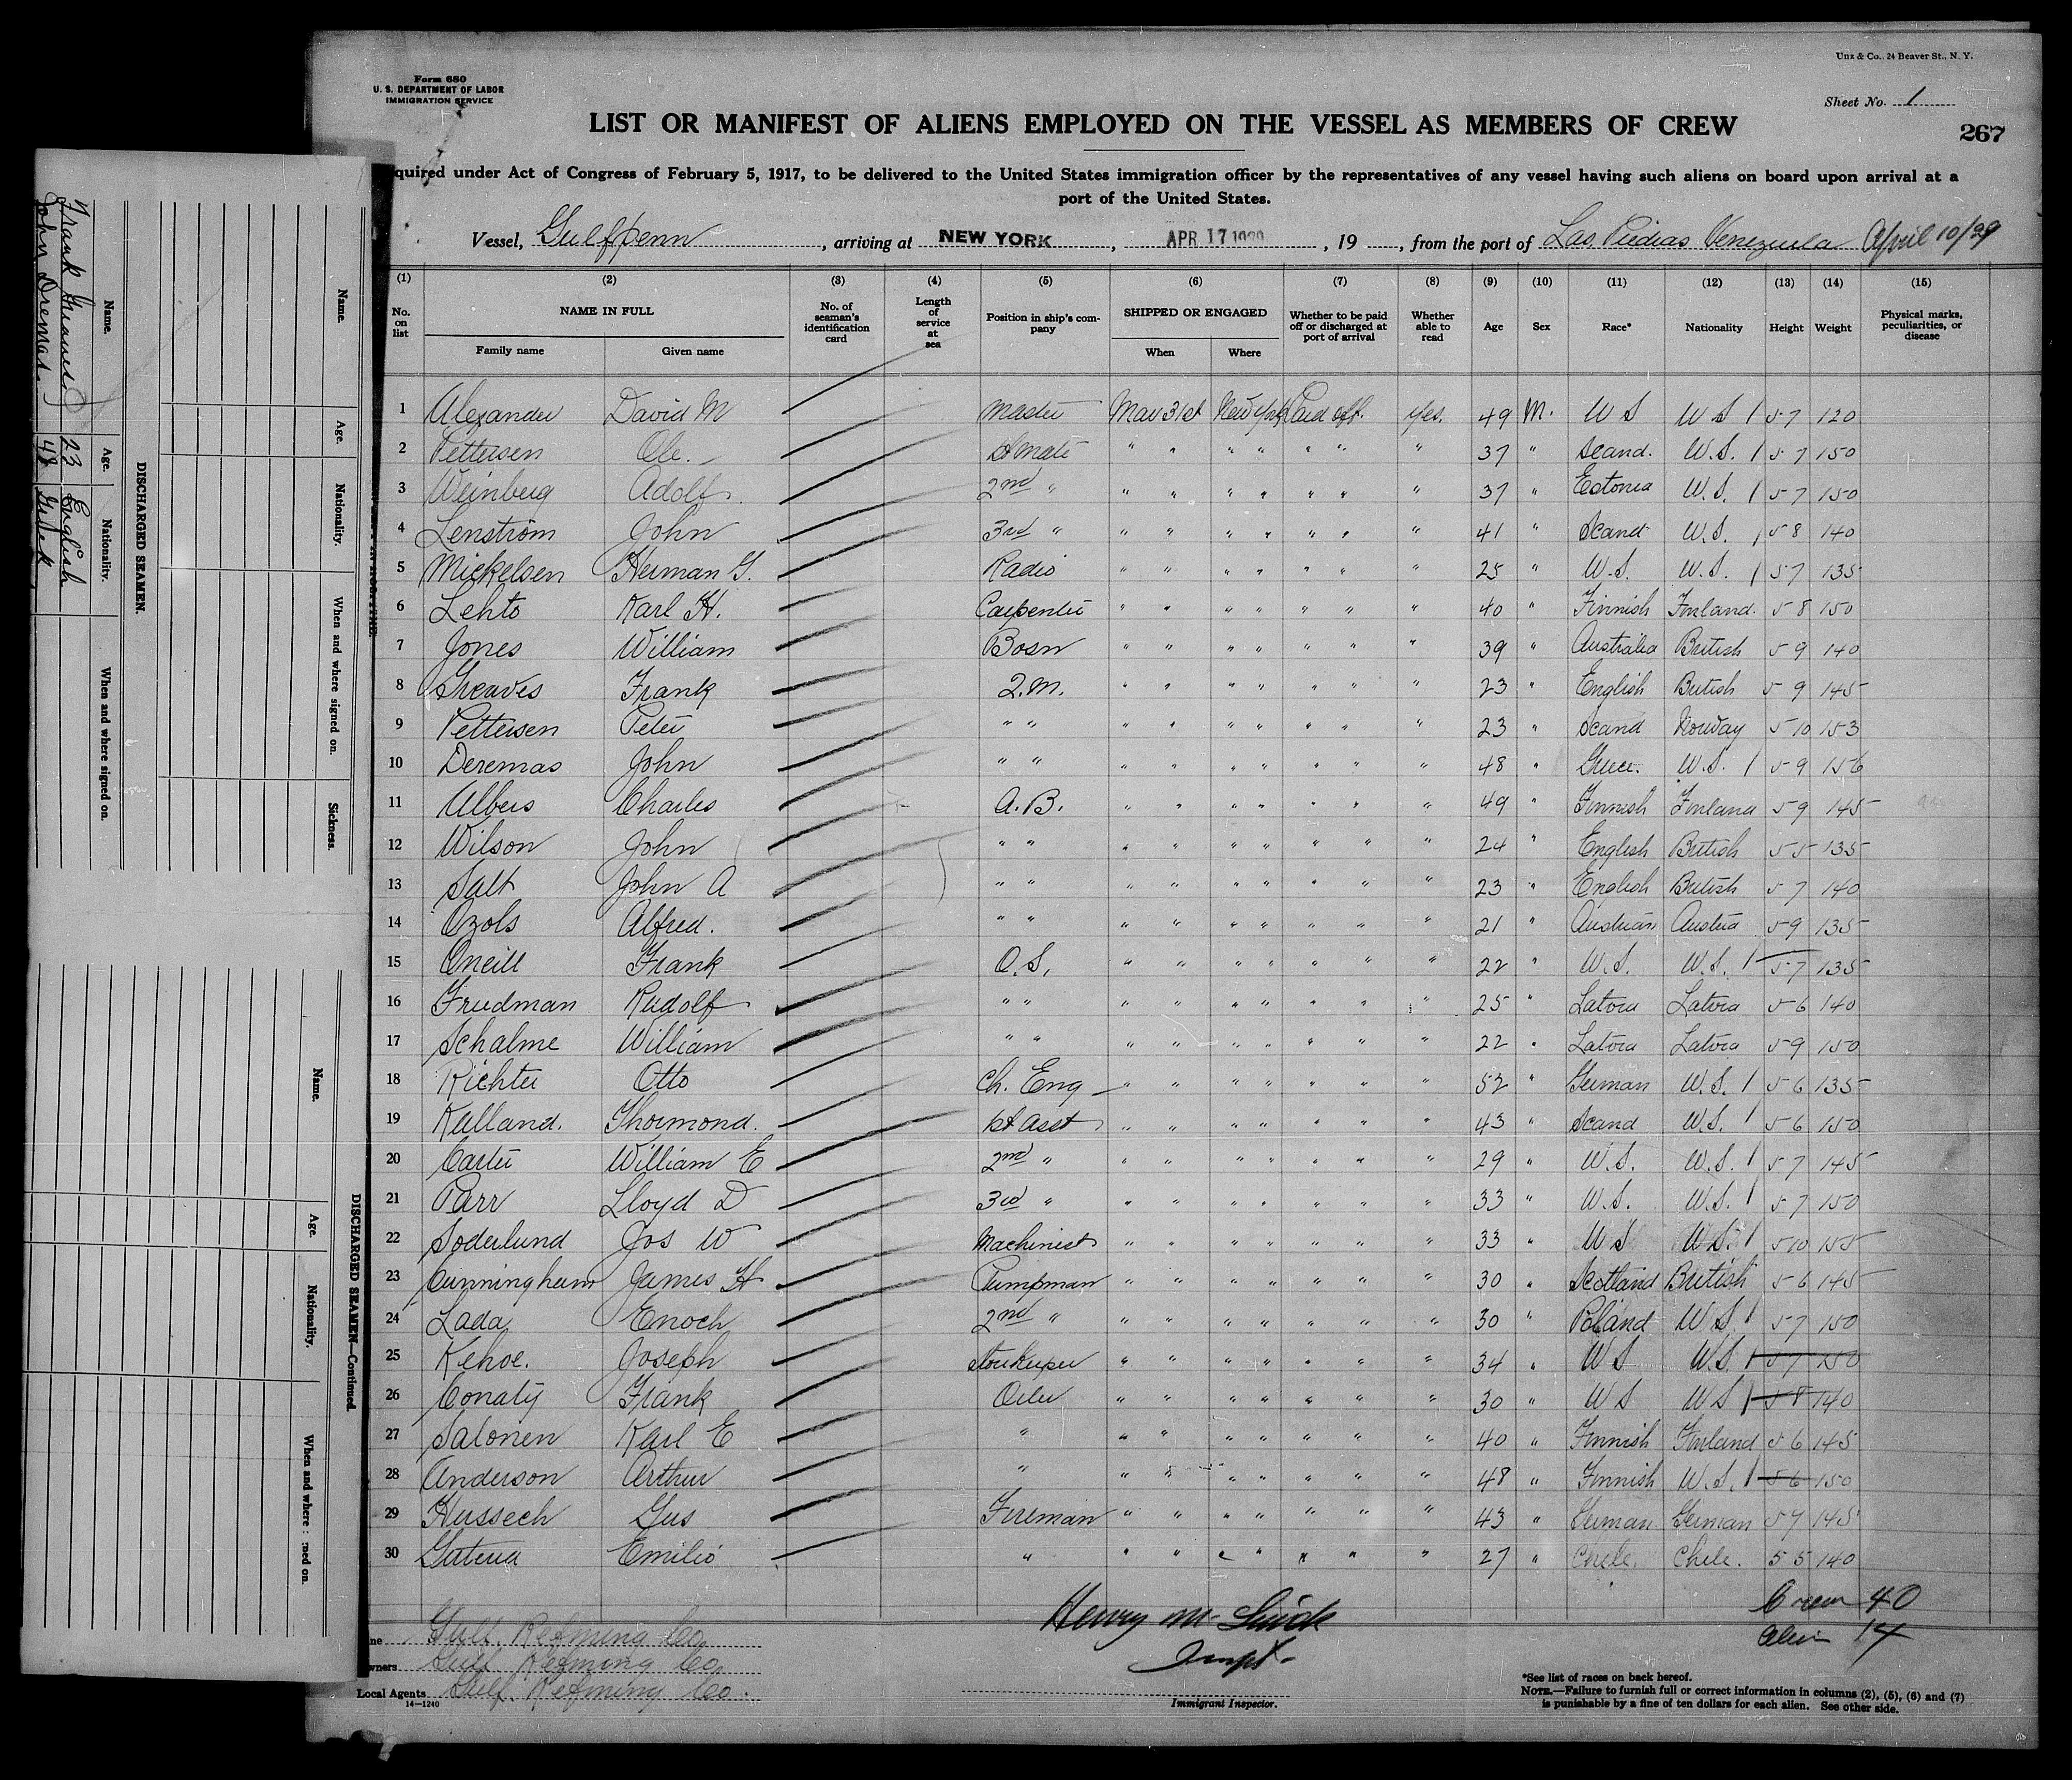 Unz & Co., 24 Beaver St., N. Y.
Form 680
U. S. DEPARTMENT OF LABOR
IMMIGRATION SERVICE
Sheet No. 1
LIST OR MANIFEST OF ALIENS EMPLOYED ON THE VESSEL AS MEMBERS OF CREW
267
quired under Act of Congress of February 5, 1917, to be delivered to the United States immigration officer by the representatives of any vessel having such aliens on board upon arrival at a
port of the United States.
Vessel, Gulfpenn, arriving at NEW YORK, APR 17 1929, 19, from the port of Las Piedras Venezuela April 10/29
(1) (2) (3) (4) (5) (6) (7) (8) (9) (10) (11) (12) (13) (14) (15)
No. on list NAME IN FULL Family name Given name No. of seaman's identification card Length of service at sea Position in ship's company SHIPPED OR ENGAGED When Where Whether to be paid off or discharged at port of arrival Whether able to read Age Sex Race* Nationality Height Weight Physical marks, peculiarities, or disease
1 Alexander David M Master Mar 31st New York Paid off. Yes. 49 M. U S U S 1 5 7 120
2 Pettersen Ole. 1st Mate " " " " " " " 37 " Scand. U.S. 1 5 7 150
3 Weinberg Adolf 2nd " " " " " " " " 37 " Estonia U.S. 1 5 7 150
4 Lenstrom John 3rd " " " " " " " " 41 " Scand U.S. 1 5 8 140
5 Mickelsen Herman G. Radio " " " " " " " 25 " U.S. U.S. 1 5 7 135
6 Lehto Karl H. Carpenter " " " " " " " 40 " Finnish Finland. 5 8 150
7 Jones William Bosn " " " " " " " 39 " Australia British 5 9 140
8 Greaves Frank Q.M. " " " " " " " 23 " English British 5 9 145
9 Pettersen Peter " " " " " " " " " 23 " Scand Norway 5 10 153
10 Deremas John " " " " " " " " " 48 " Greece. U.S. 1 5 9 156
11 Albers Charles A.B. " " " " " " " 49 " Finnish Finland 5 9 145
12 Wilson John " " " " " " " " " 24 " English British 5 5 135
13 Salt John A " " " " " " " " " 23 " English British 5 7 140
14 Ozols Alfred. " " " " " " " " " 21 " Austrian Austria 5 9 135
15 Oneill Frank O.S. " " " " " " " 22 " U.S. U.S. 1 5 7 135
16 Friedman Rudolf " " " " " " " " " 25 " Latvia Latvia 5 6 140
17 Schalme William " " " " " " " " " 22 " Latvia Latvia 5 9 150
18 Richter Otto Ch. Eng " " " " " " " 52 " German U.S. 1 5 6 135
19 Kulland. Thormond. 1st Asst " " " " " " " 43 " Scand U.S. 1 5 6 150
20 Carter William E 2nd " " " " " " " " 29 " U.S. U.S. 1 5 7 145
21 Parr Lloyd D 3rd " " " " " " " " 33 " U.S. U.S. 1 5 7 150
22 Soderlund Jos W Machinist " " " " " " " 33 " U S U.S. 1 5 10 155
23 Cunningham James H Pumpman " " " " " " " 30 " Scotland British 5 6 145
24 Lada Enoch 2nd " " " " " " " " 30 " Poland U S 1 5 7 150
25 Kehoe. Joseph Storekeeper " " " " " " " 34 " U S U.S. 1 5 7 150
26 Conaty Frank Oiler " " " " " " " 30 " U S U S 1 5 8 140
27 Salonen Karl E " " " " " " " " 40 " Finnish Finland 5 6 145
28 Anderson Arthur " " " " " " " " 48 " Finnish U.S. 1 5 6 150
29 Hussech Gus Fireman " " " " " " " 43 " German German 5 7 145
30 Emilio " " " " " " " " 27 " Chile. Chile. 5 5 140
Crew 40
Alien 14
Henry M.
Inspt.
Immigrant Inspector.
ne Gulf Refining Co.
wners Gulf Refining Co.
Local Agents Gulf Refining Co.
14-1240
*See list of races on back hereof.
NOTE.—Failure to furnish full or correct information in columns (2), (5), (6) and (7)
is punishable by a fine of ten dollars for each alien. See other side.
DISCHARGED SEAMEN.
Name. Age. Nationality. When and where signed on. Sickness.
Name. Age. Nationality. When and where signed on.
Frank Greaves 23 English
John Deremas. 48 Greek
DISCHARGED SEAMEN—Continued.
Name. Age. Nationality. When and where : ned on.